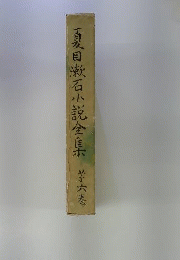 夏目漱石小説全集
第六巻